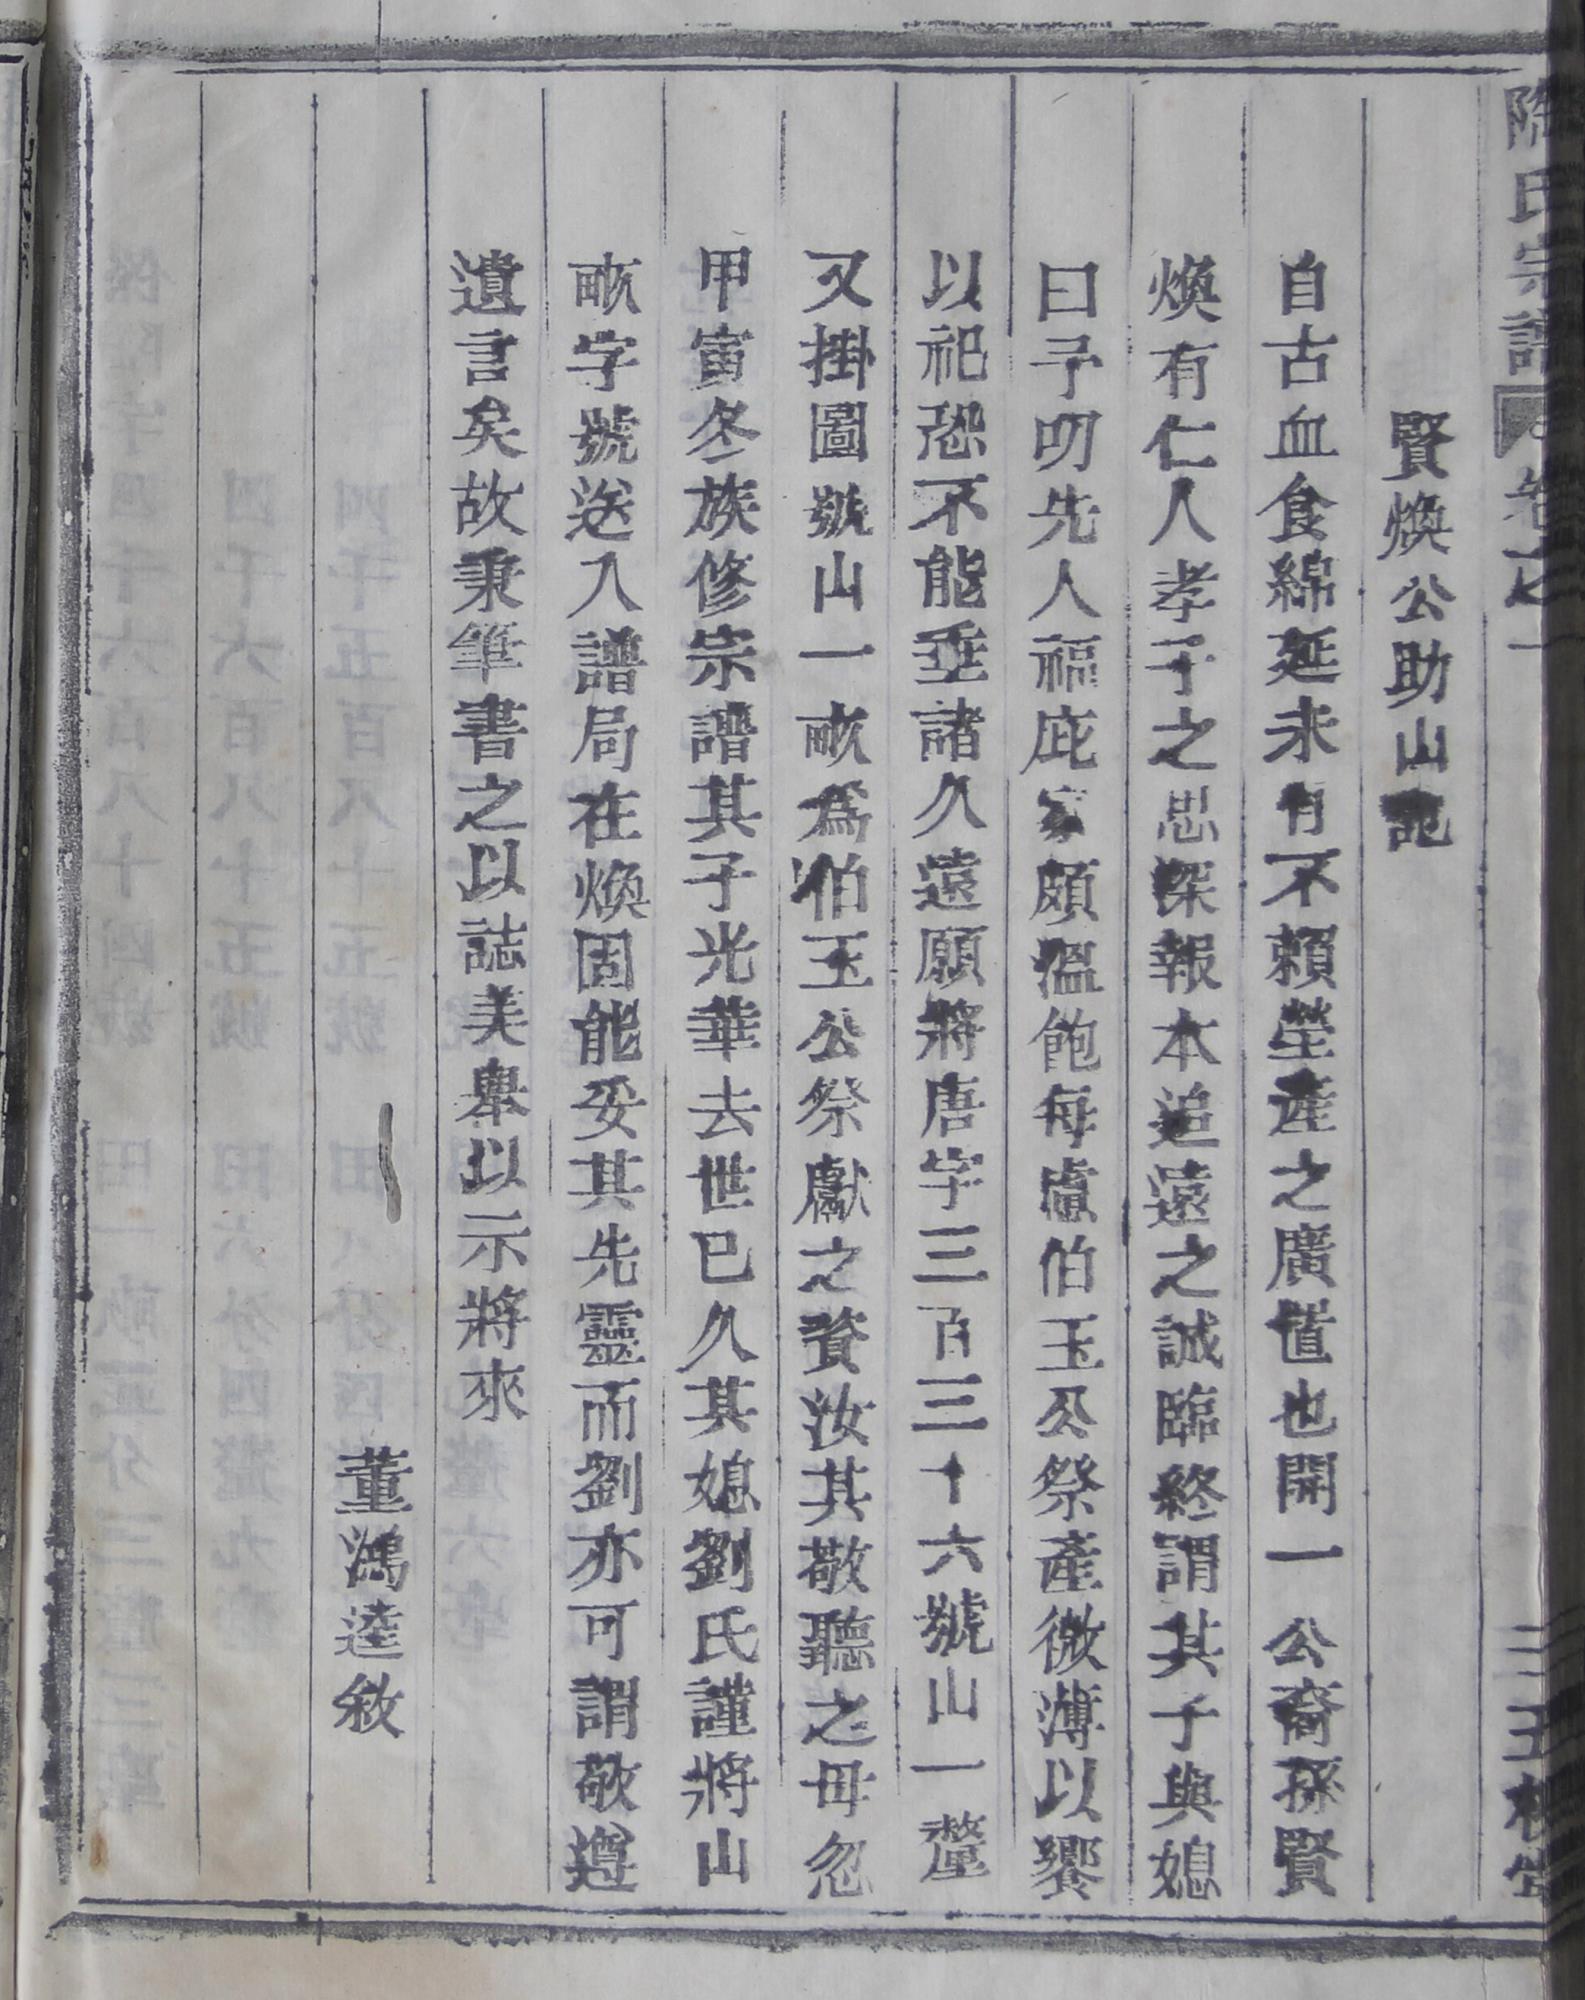 陶氏宗譜 卷之一 三 五柳堂
賢煥公助山記
自古血食綿延未有不賴塋產之廣置也開一公裔孫賢
煥有仁人孝子之思深報本追遠之誠臨終謂其子與媳
曰予叨先人福庇家頗溫飽每慮伯玉公祭產微薄以饗
以祀恐不能垂諸久遠願將唐字三百三十六號山一釐
又掛圖號山一畝爲伯玉公祭獻之資汝其敬聽之毋忽
甲寅冬族修宗譜其子光華去世已久其媳劉氏謹將山
畝字號送入譜局在煥固能妥其先靈而劉亦可謂敬遵
遺言矣故秉筆書之以誌美舉以示將來
董鴻逵敘